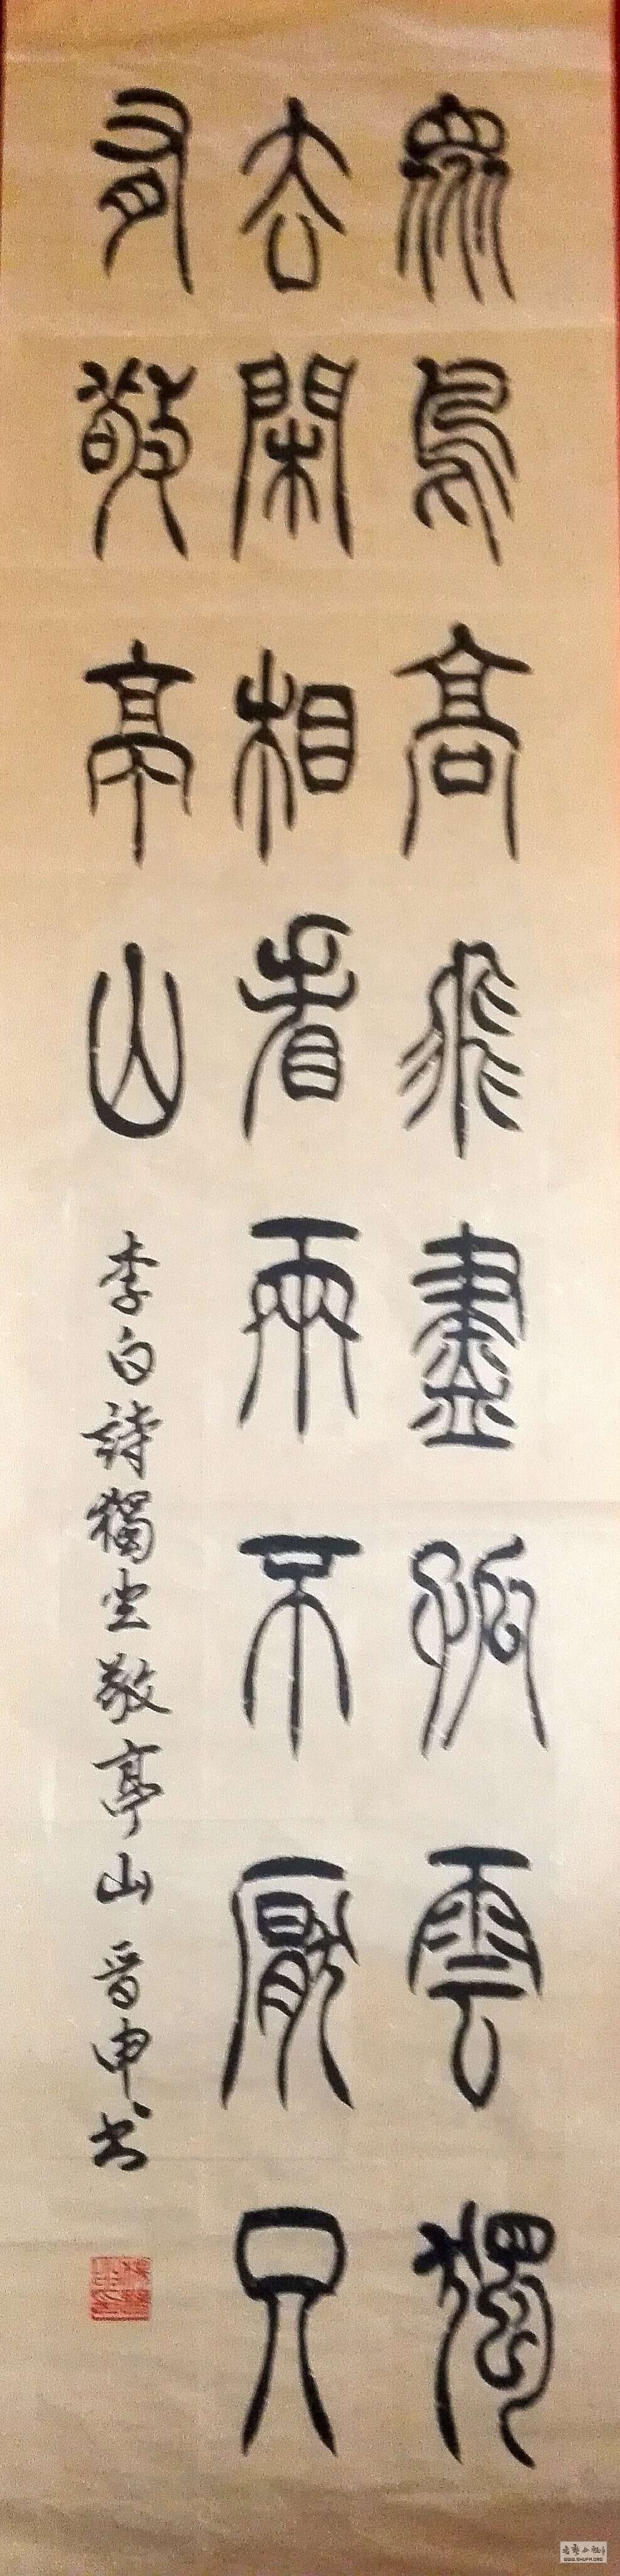 眾鳥高飛盡孤雲獨
去閑相看兩不厭只
有敬亭山
李白詩獨坐敬亭山 晋申书
WWW.SHUFA.ORG